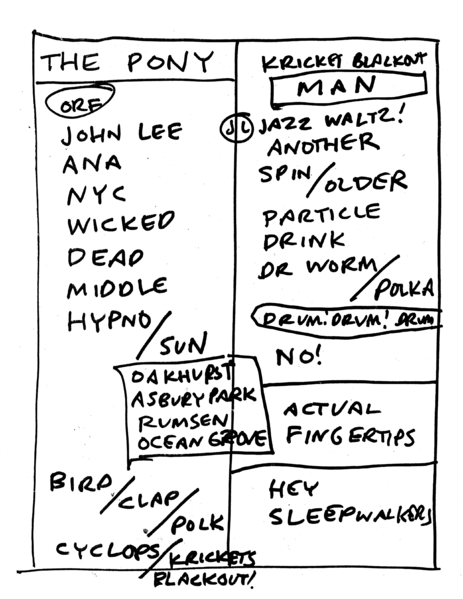 THE PONY
ORE
JOHN LEE
ANA
NYC
WICKED
DEAD
MIDDLE
HYPNO/
SUN
OAKHURST
ASBURY PARK
RUMSEN
OCEAN GROVE
BIRD/
CLAP/
POLK
CYCLOPS/KRICKETS
BLACKOUT!
KRICKET BLACKOUT
MAN
JL JAZZ WALTZ!
ANOTHER
SPIN/OLDER
PARTICLE
DRINK
DR WORM/
POLKA
DRUM! DRUM! DRUM
NO!
ACTUAL
FINGERTIPS
HEY
SLEEPWALKERS